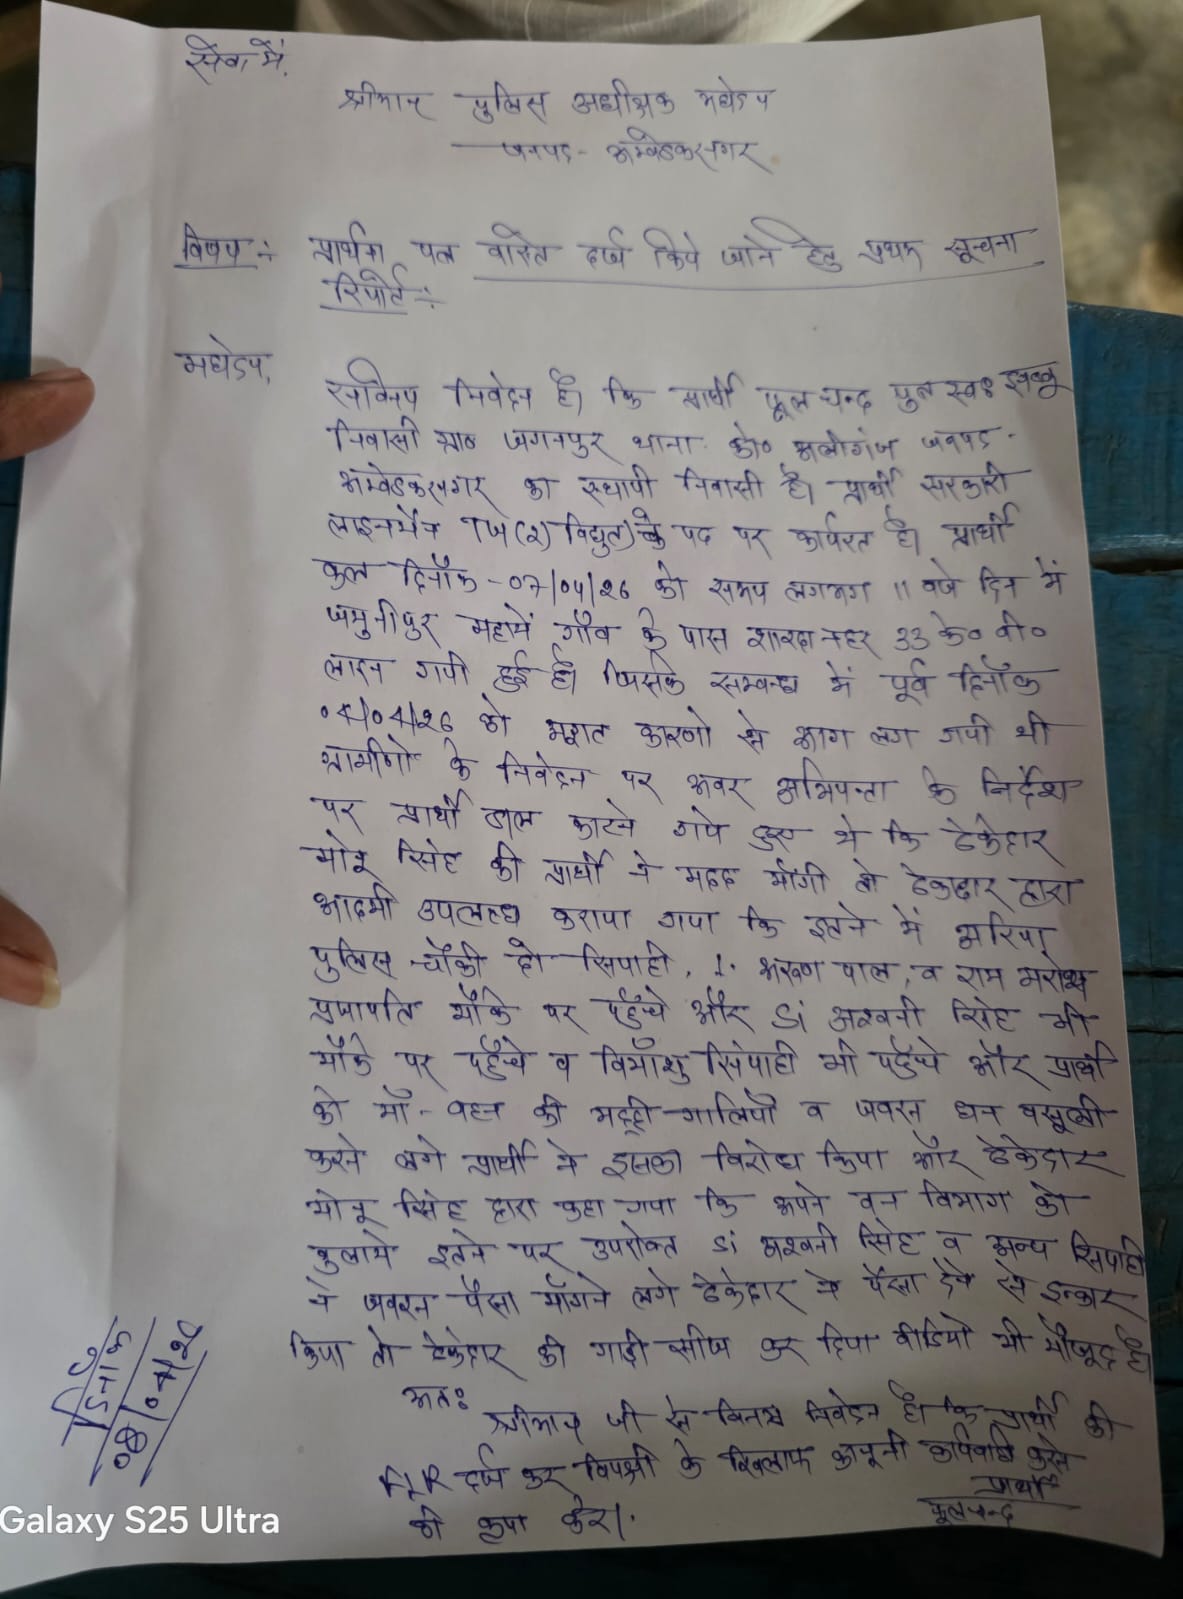 सेवा में,
श्रीमान पुलिस अधीक्षक महोदय
जनपद - अम्बेडकरनगर
विषय :- प्रार्थना पत्र वास्ते दर्ज किये जाने हेतु प्रथम सूचना
रिपोर्ट :-
महोदय,
सविनय निवेदन है। कि प्रार्थी फूलचन्द पुत्र स्व०
निवासी ग्रा० जगनपुर थाना को० अलीगंज जनपद -
अम्बेडकरनगर का स्थायी निवासी है। प्रार्थी सरकारी
लाइनमैन (2) विद्युत) के पद पर कार्यरत है। प्रार्थी
कल दिनाँक - 07/04/26 को समय लगभग 11 बजे दिन में
जमुनीपुर गाँव के पास शारदा नहर 33 के० वी०
लाइन गयी हुई है। जिसके सम्बन्ध में पूर्व दिनाँक
04/04/26 को अज्ञात कारणो से आग लग गयी थी
ग्रामीणो के निवेदन पर अवर अभियन्ता के निर्देश
पर प्रार्थी डाल काटने गये हुए थे कि ठेकेदार
मोनू सिंह की प्रार्थी ने मदद माँगी तो ठेकेदार द्वारा
आदमी उपलब्ध कराया गया कि इतने में
पुलिस चौकी दो सिपाही, 1. अरूण पाल, व राम भरोष
प्रजापति मौके पर पहुँचे और SI अश्वनी सिंह भी
मौके पर पहुँचे व सिपाही भी पहुँचे और प्रार्थी
को माँ - बहन की भद्दी - गालियाँ व जबरन धन वसूली
करने लगे प्रार्थी ने इसका विरोध किया और ठेकेदार
मोनू सिंह द्वारा कहा गया कि अपने वन विभाग को
बुलाये इतने पर उपरोक्त SI अश्वनी सिंह व अन्य सिपाही
ने जबरन पैसा माँगने लगे ठेकेदार ने पैसा देने से इन्कार
किया तो ठेकेदार की गाड़ी सीज कर दिया वीडियो भी मौजूद है।
अतः
श्रीमान जी से विनम्र निवेदन है। कि प्रार्थी की
FIR दर्ज कर विपक्षी के खिलाफ कानूनी कार्यवाही करने
की कृपा करे।
प्रार्थी
फूलचन्द
दिनांक
08/04/26
Galaxy S25 Ultra